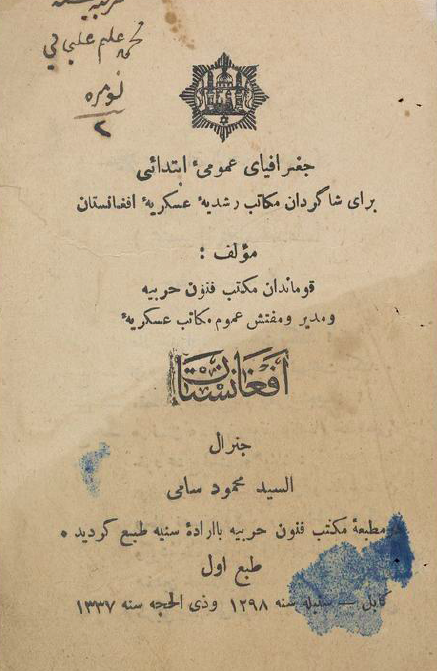 محمد علیم علیجانی
نومره
۲
جغرافیای عمومیٔ ابتدائی
برای شاگردان مکاتب رشدیهٔ عسکریهٔ افغانستان
مؤلف :
قوماندان مکتب فنون حربیه
و مدیر و مفتش عموم مکاتب عسکریهٔ
افغانستان
جنرال
السید محمود سامی
مطبعهٔ مکتب فنون حربیه باارادهٔ سنیه طبع گردید .
طبع اول
کابل — سنبله سنه ۱۲۹۸ وذی الحجه سنه ۱۳۳۷